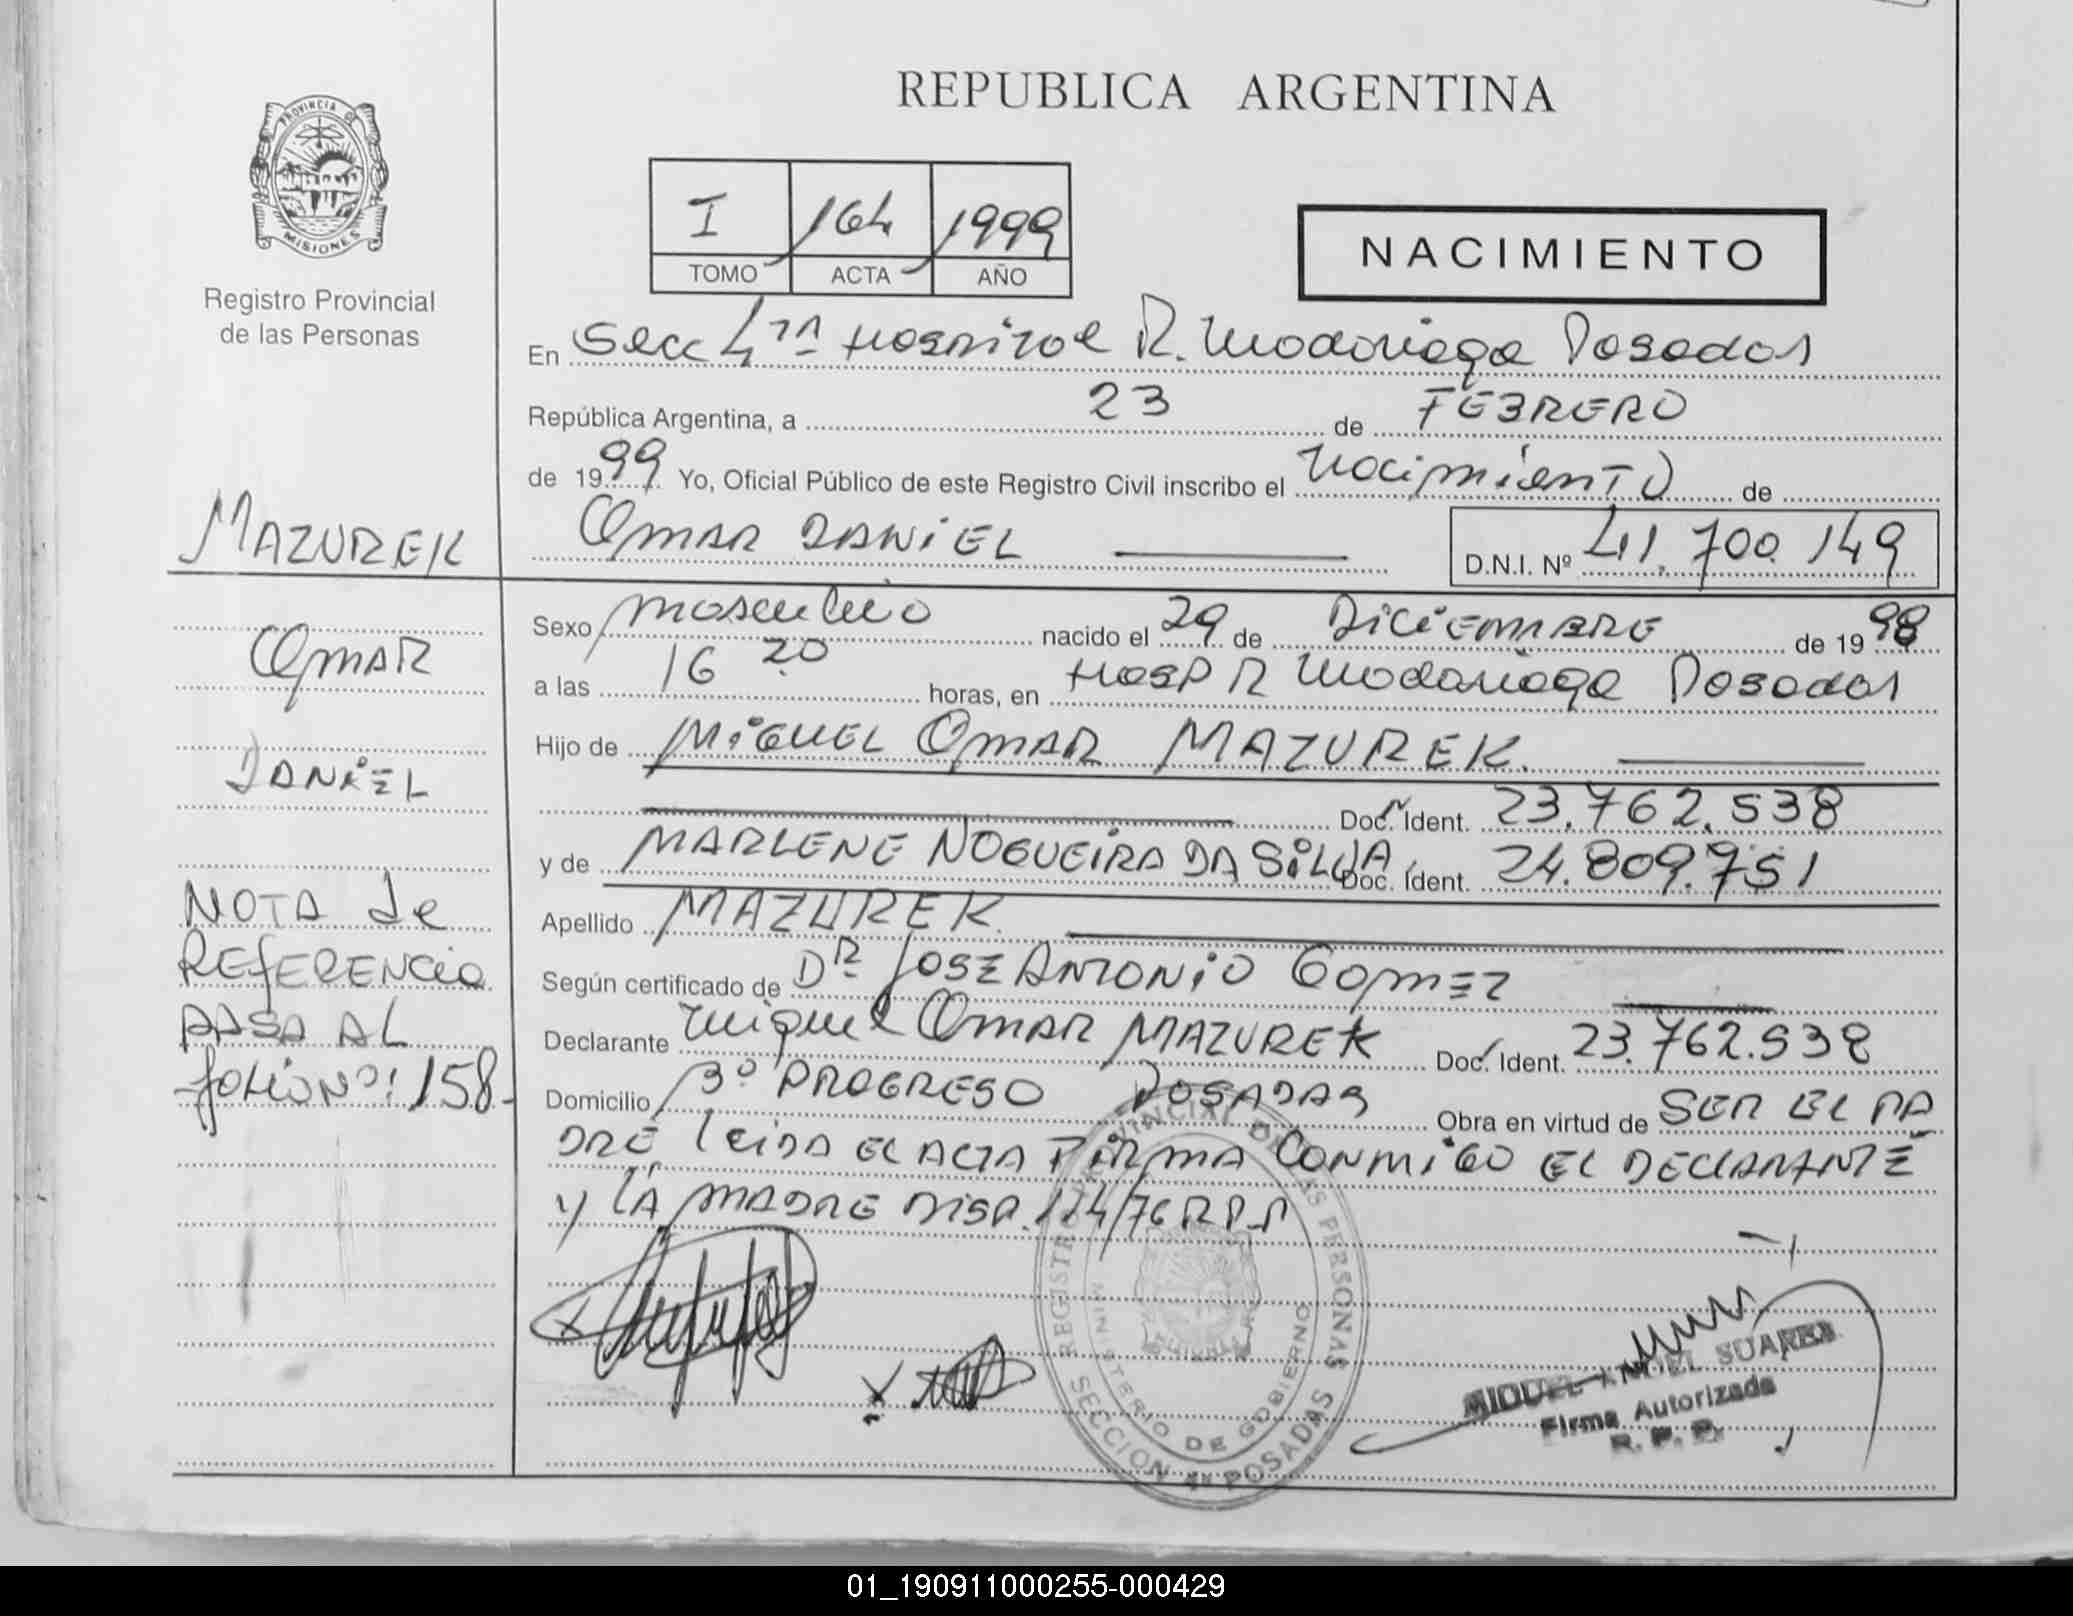 REPUBLICA ARGENTINA
PROVINCIA DE
MISIONES
Registro Provincial
de las Personas
I 164 1999
TOMO ACTA AÑO
NACIMIENTO
En Secc 4ta Hospital R. Madariaga Posadas
República Argentina, a 23 de FEBRERO
de 1999 Yo, Oficial Público de este Registro Civil inscribo el nacimiento de
OMAR DANIEL D.N.I. Nº 41.700.149
Sexo masculino nacido el 29 de DICIEMBRE de 1998
a las 16 20 horas, en HOSP R Madariaga Posadas
Hijo de MIGUEL OMAR MAZUREK.
Doc. Ident. 23.762.538
y de MARLENE NOGUEIRA DA SILVA Doc. Ident. 24.809.751
Apellido MAZUREK
Según certificado de DR JOSE ANTONIO GOMEZ
Declarante Miguel OMAR MAZUREK Doc. Ident. 23.762.538
Domicilio Bº PROGRESO POSADAS Obra en virtud de SER EL PA
DRE, leida EL ACTA FIRMA CONMIGO EL DECLARANTE
y LA MADRE DISP. 174/76 R.P.P
MAZUREK
OMAR
DANIEL
NOTA de
REFERENCIA
PASA AL
folio Nº: 158-
REGISTRO PROVINCIAL DE LAS PERSONAS
MINISTERIO DE GOBIERNO
SECCION 4ª POSADAS
MIGUEL ANGEL SUARES
Firma Autorizada
R. P. P.
01_190911000255-000429